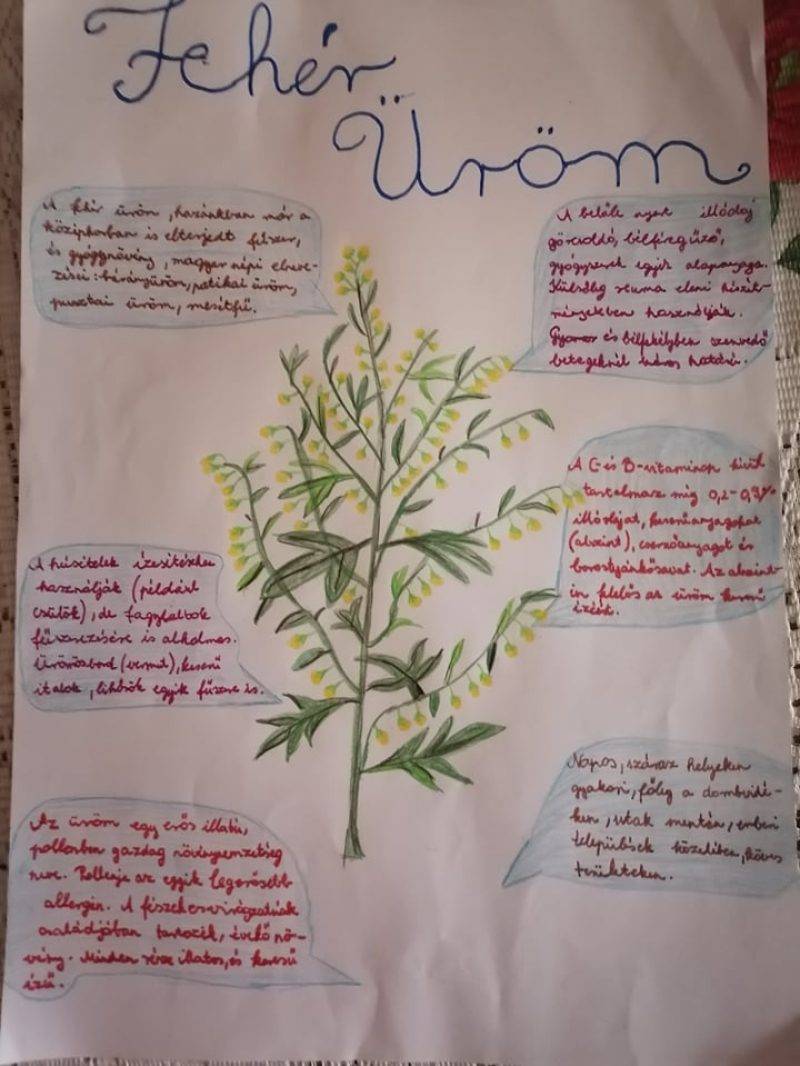 Fehér
Üröm
A fehér üröm, hazánkban már a
középkorban is elterjedt fűszer,
és gyógynövény, magyar népi elneve-
zései: bárányüröm, patikai üröm,
pusztai üröm, mésétfű.
A belőle nyert illóolaj
görcsoldó, bélféregűző,
gyógyszerek egyik alapanyaga.
Külsőleg reuma elleni készít-
ményekben használják.
Gyomor és bélfekélyben szenvedő
betegeknél káros hatású.
A C-és B-vitaminon kívül
tartalmaz még 0,2-0,3%
illóolajat, keserűanyagokat
(abszint), cserzőanyagot és
borostyánkősavat. Az abszint-
in felelős az üröm keserű
ízéért.
A húsételek ízesítésére
használják (például
csülök), de fagylaltok
fűszerezésére is alkalmas.
Ürmösbord (vermut), keserű
italok, likőrök egyik fűszere is.
Napos, száraz helyeken
gyakori, főleg a dombvidé-
ken, utak mentén, emberi
települések közelében, köves
területeken.
Az üröm egy erős illatú,
pollenben gazdag növénynemzetség
neve. Pollenje az egyik legerősebb
allergén. A fészekesvirágzatúak
családjában tartozik, évelő nö-
vény. Minden része illatos, és keserű
ízű.